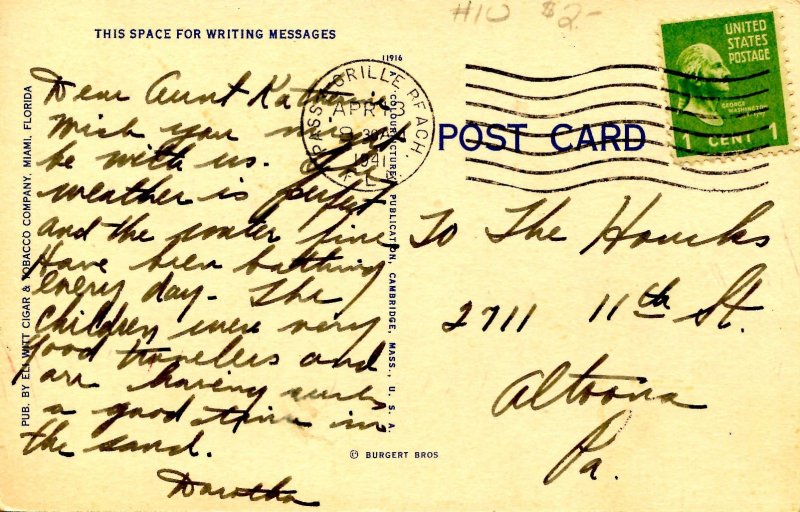 #10 $2-
THIS SPACE FOR WRITING MESSAGES
11916
Dear Aunt
Wish you might
be with us. The
weather is perfect
and the water fine
Have been bathing
every day. The
children were very
good travelers and
are having such
a good time in
the sand.
Dorotha
PUB. BY ELI WITT CIGAR & TOBACCO COMPANY, MIAMI, FLORIDA
COLOURPICTURE PUBLICATION, CAMBRIDGE, MASS., U. S. A.
© BURGERT BROS
PASS-A-GRILLE BEACH,
APR
9
1941
FLA
POST CARD
UNITED
STATES
POSTAGE
GEORGE WASHINGTON
1 CENT 1
To The Houcks
2711 11th St.
Altoona
Pa.